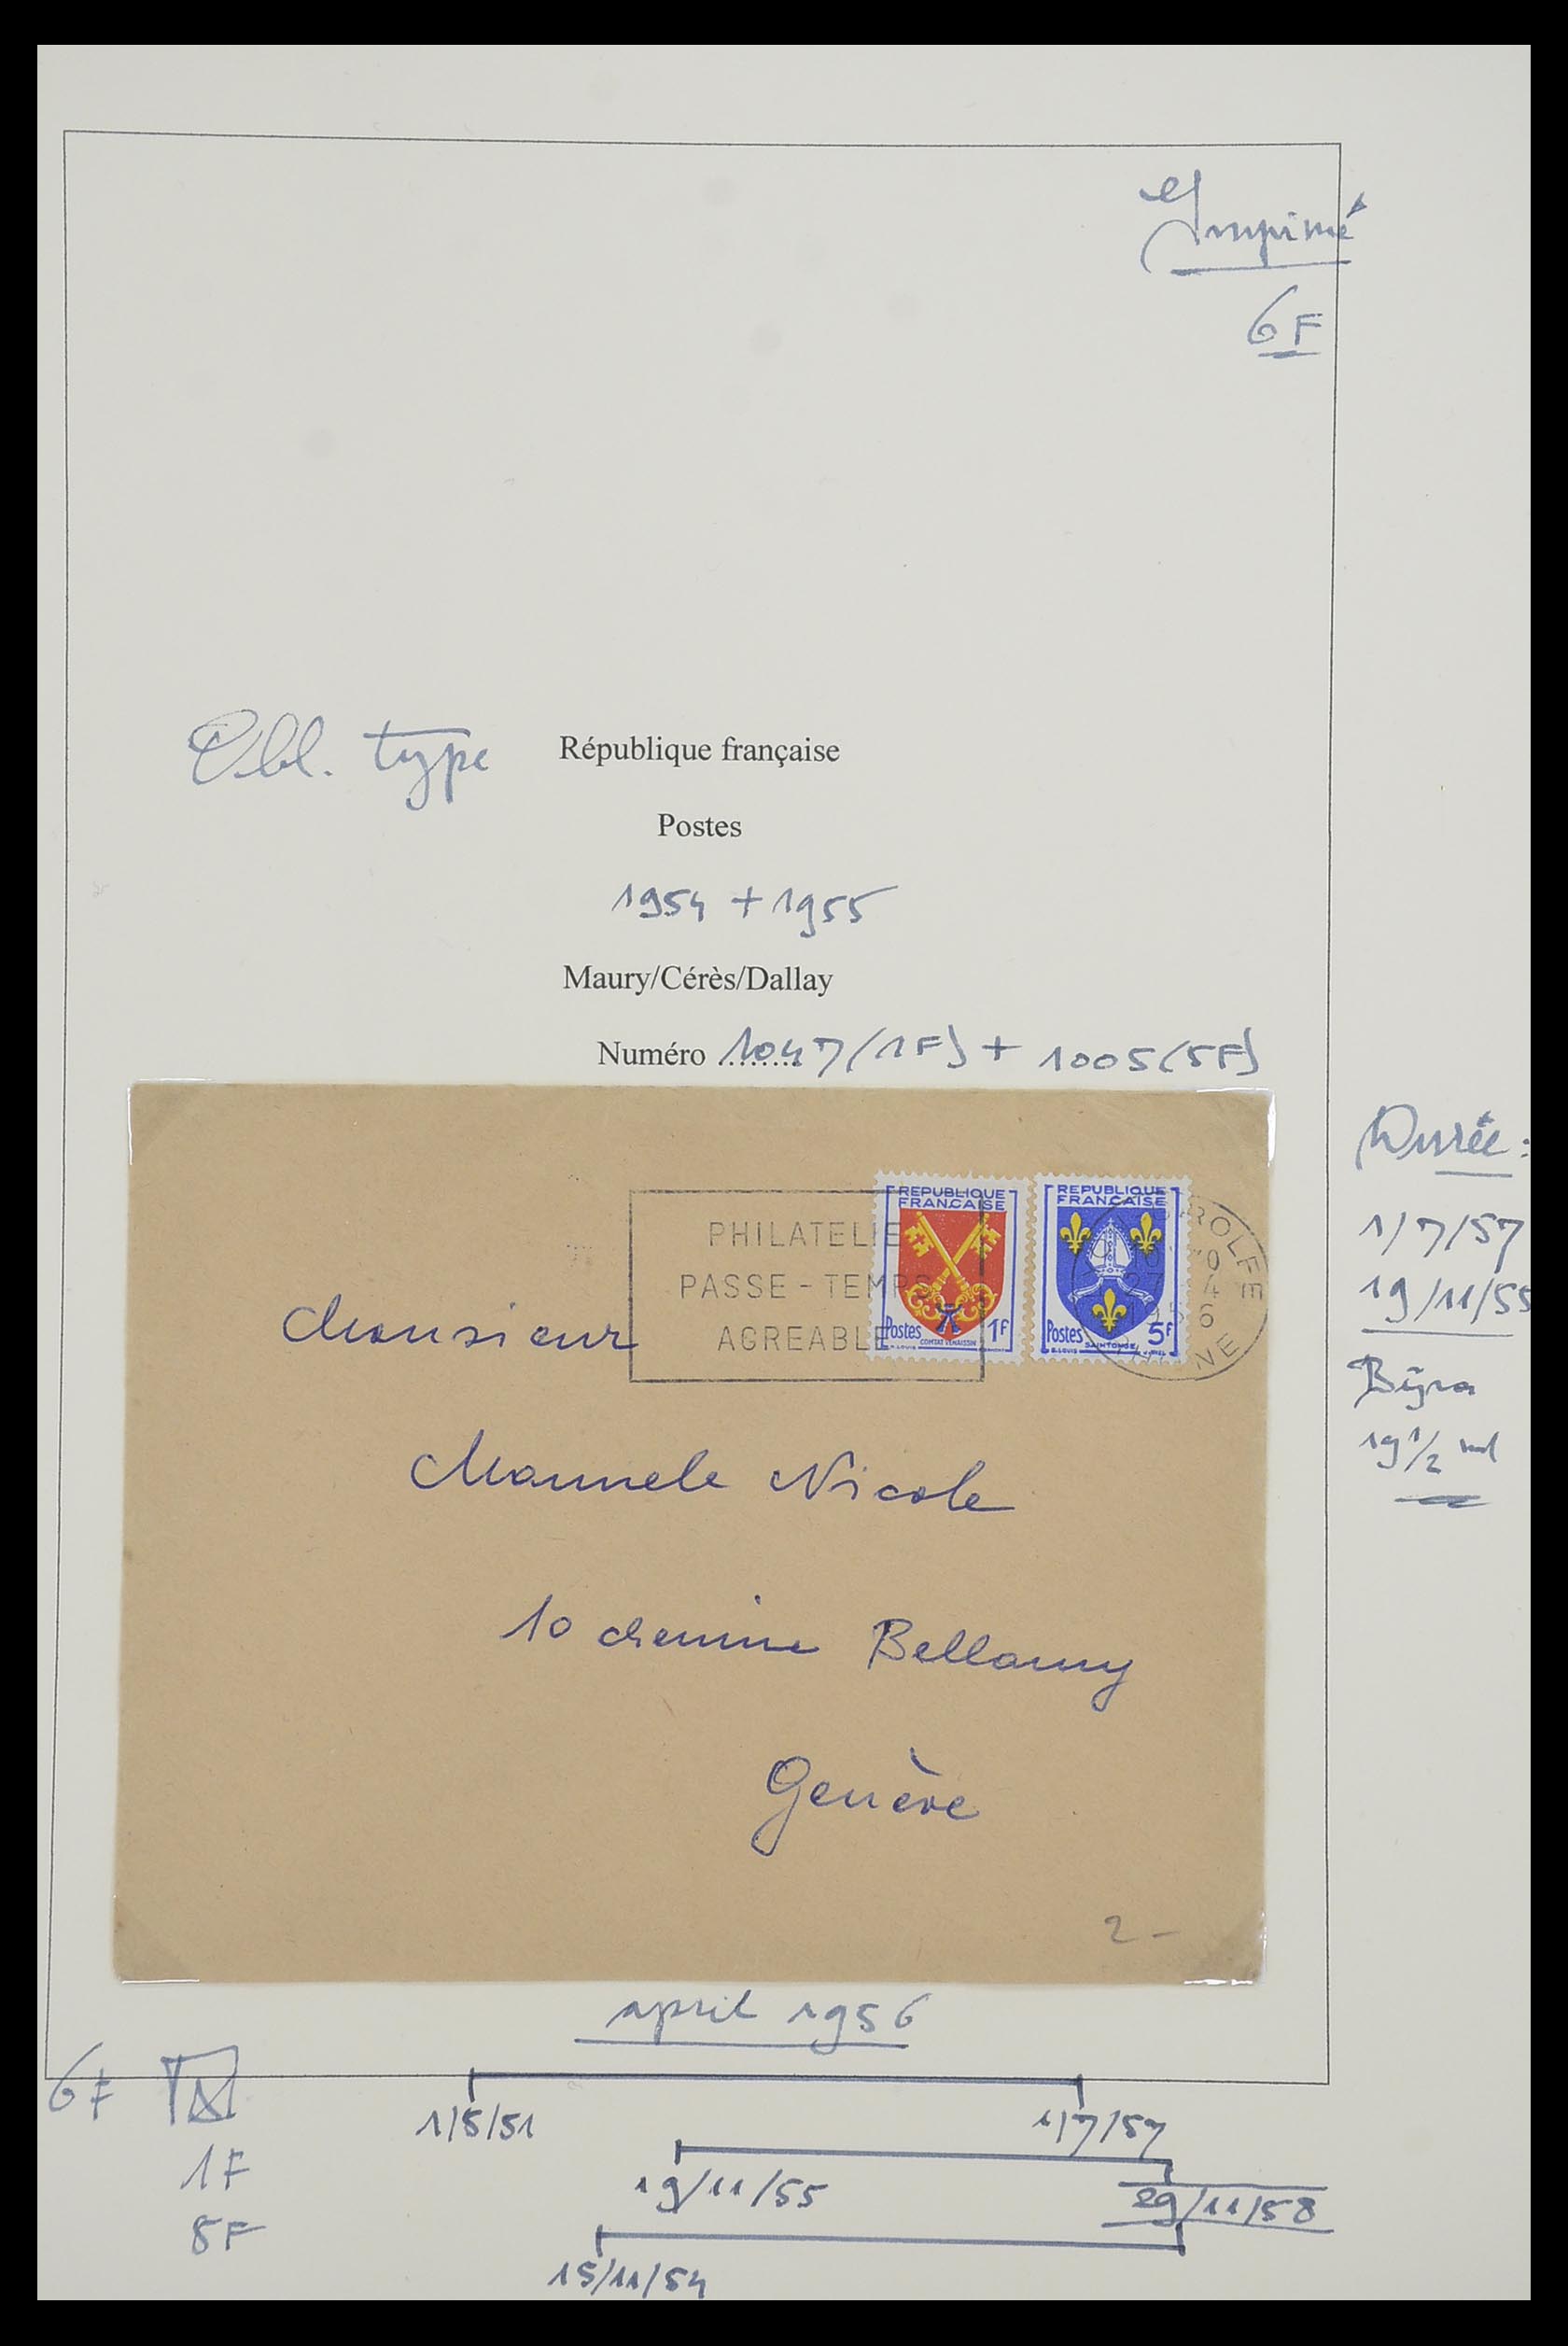 Imprimé
6F
Obl. type
République française
Postes
1954 + 1955
Maury/Cérès/Dallay
Numéro ........ 1047 (1F) + 1005 (5F)
PHILATELIE
PASSE-TEMPS
AGREABLE
REPUBLIQUE
FRANÇAISE
Postes
1F
COMTAT VENAISSIN
REPUBLIQUE
FRANÇAISE
Postes
5F
SAINTONGE
27 4
1956
Monsieur
Mannele Nicole
10 chemine Bellamy
Genève
2-
Durée:
1/7/57
19/11/55
Bijna
19 1/2 md
april 1956
6F
1/5/51
1/7/57
1F
19/11/55
29/11/58
5F
15/11/54